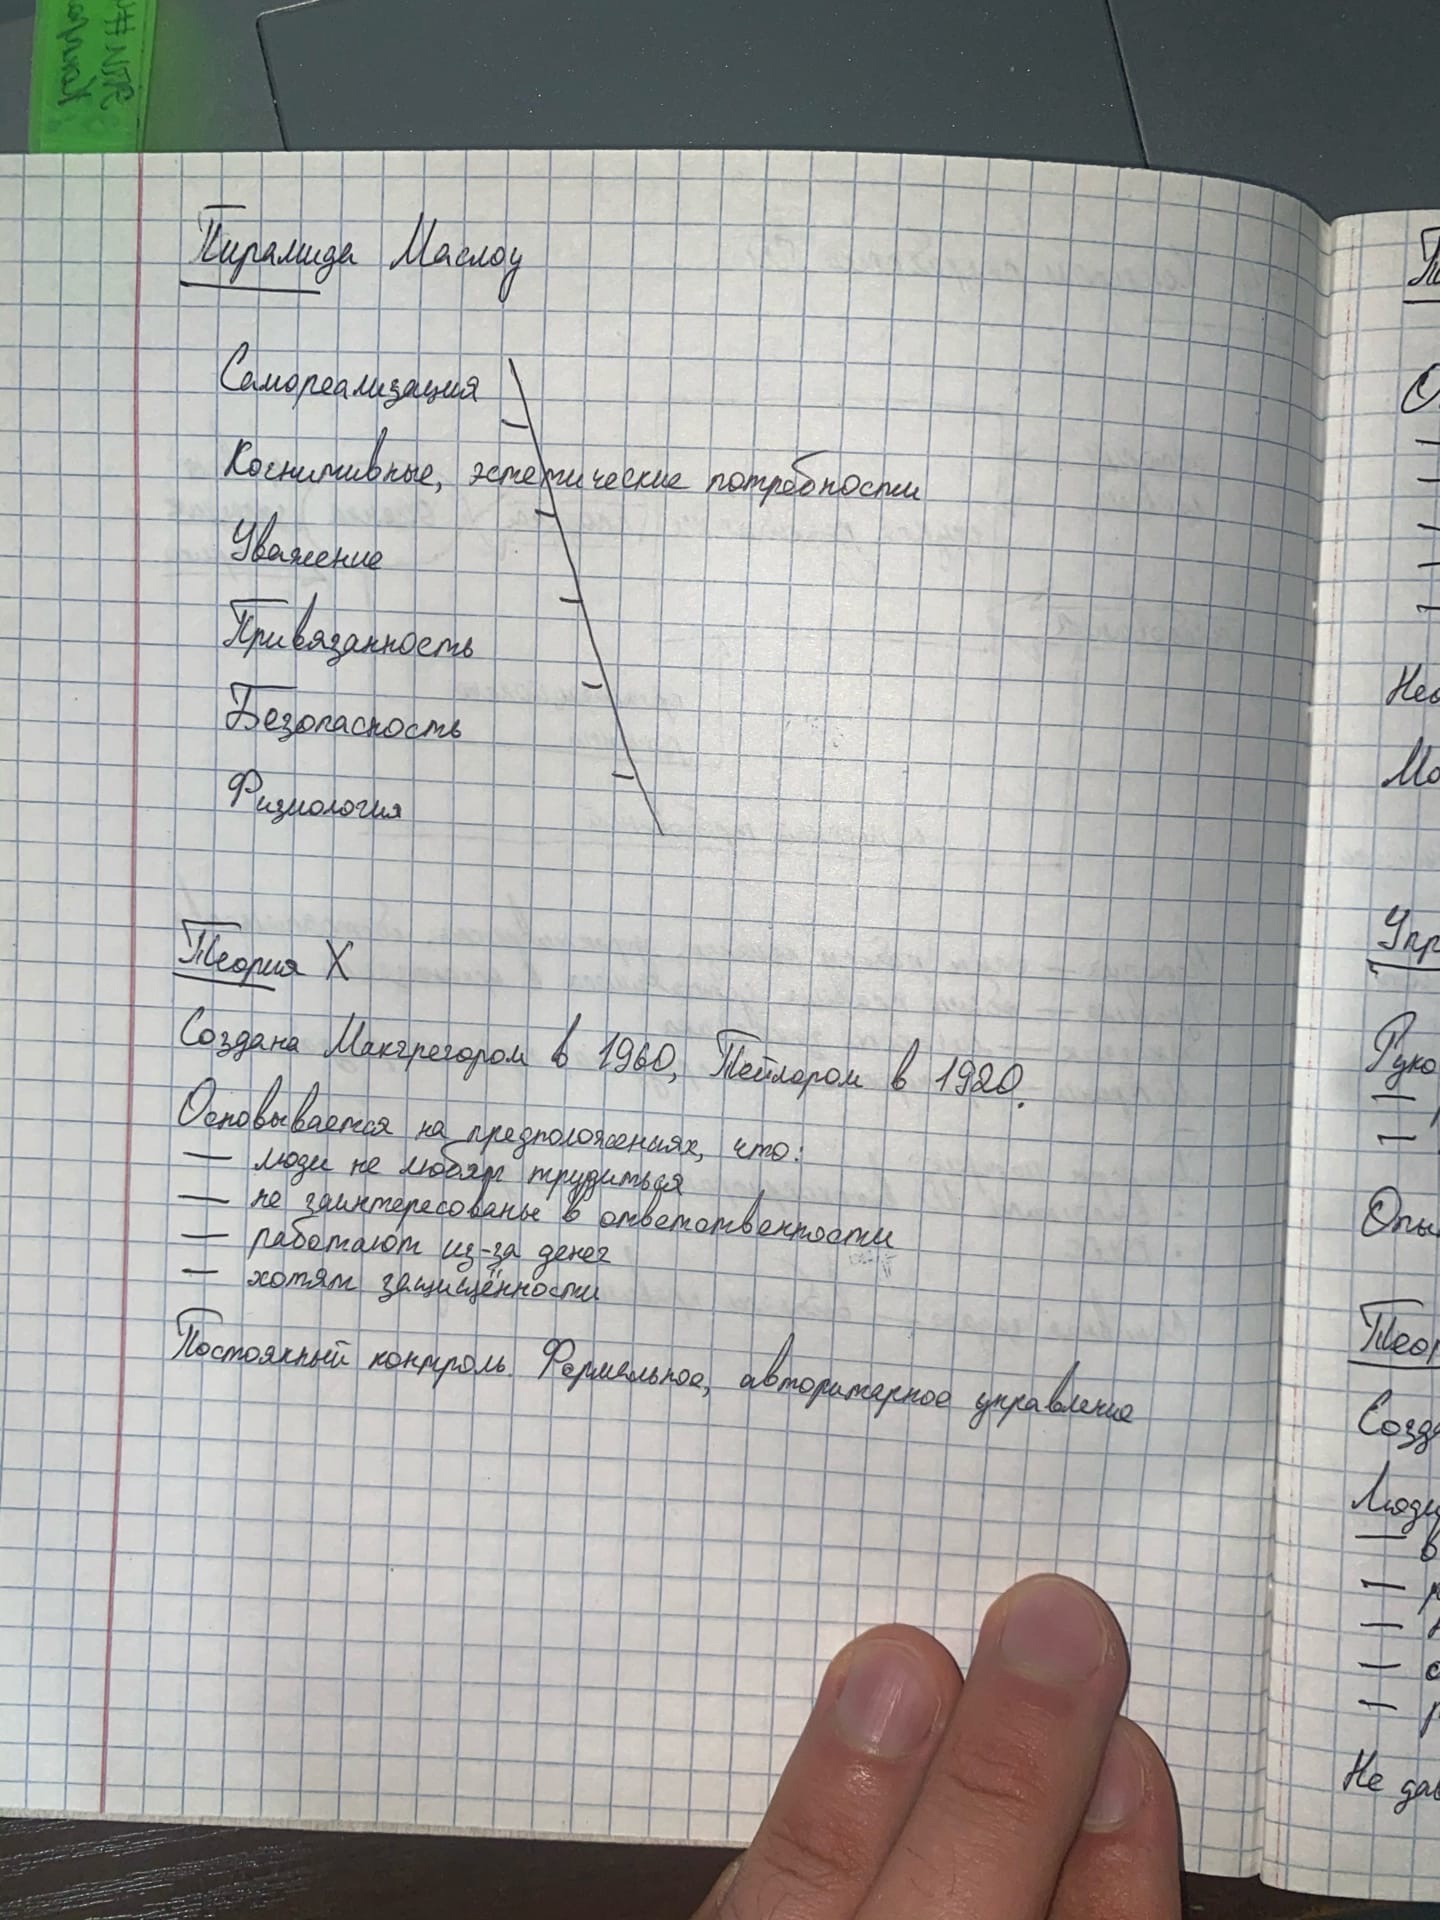 Пирамида Маслоу
Самореализация
Когнитивные, эстетические потребности
Уважение
Привязанность
Безопасность
Физиология
Теория X
Создана Макгрегором в 1960, Тейлором в 1920.
Основывается на предположениях, что:
— люди не любят трудиться
— не заинтересованы в ответственности
— работают из-за денег
— хотят защищённости
Постоянный контроль. Формальное, авторитарное управление
Не